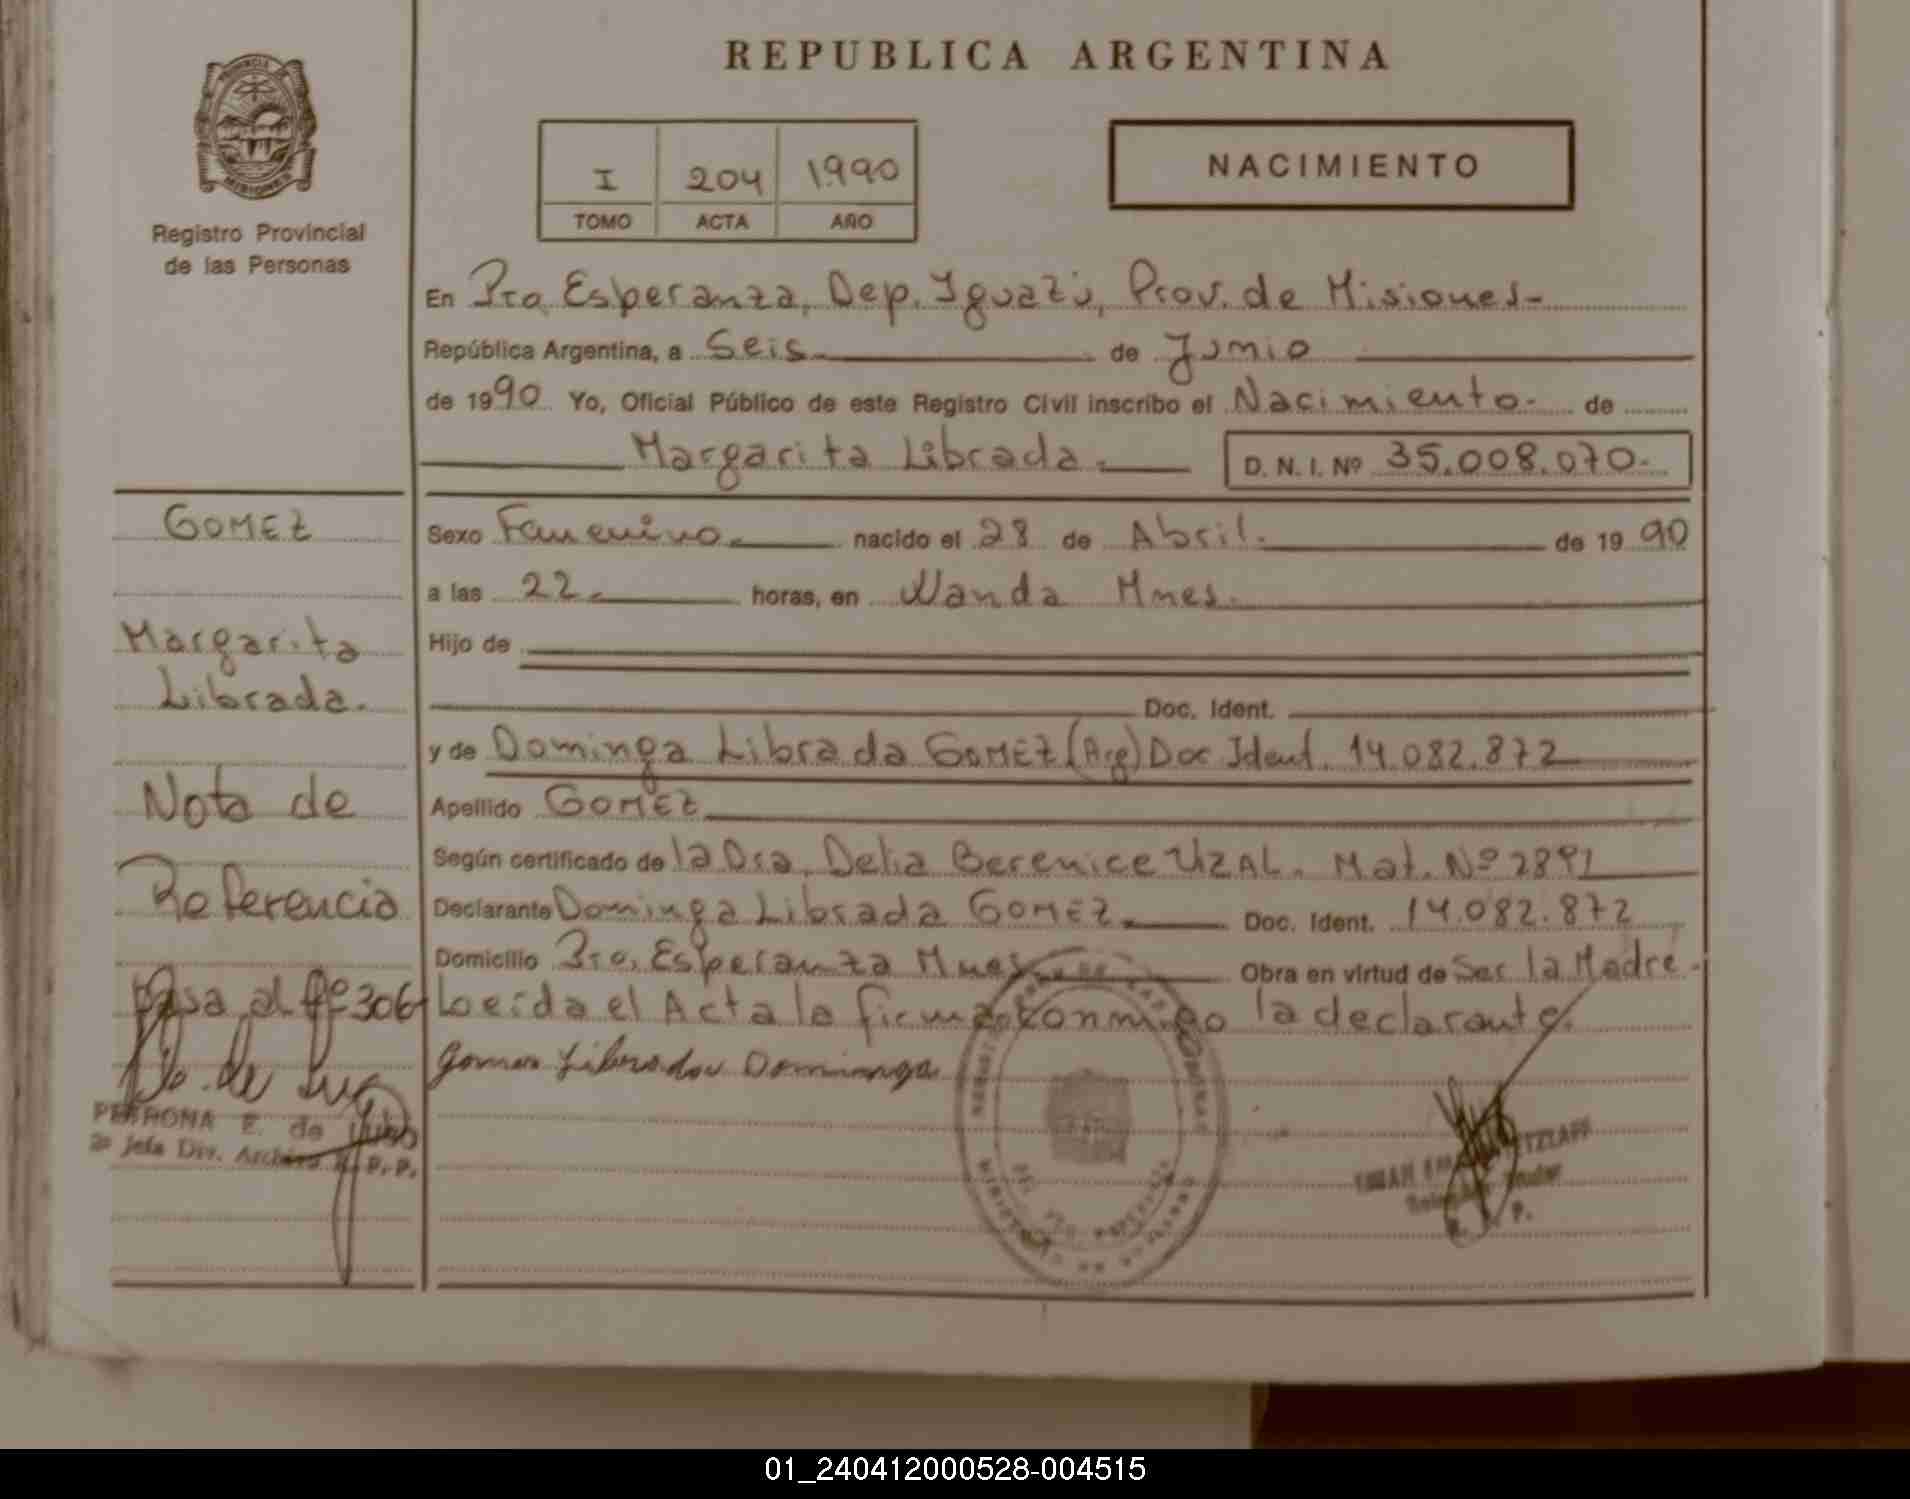 REPUBLICA ARGENTINA
PROVINCIA DE
MISIONES
Registro Provincial
de las Personas
I 204 1990
TOMO ACTA AÑO
NACIMIENTO
En Pto. Esperanza, Dep. Iguazú, Prov. de Misiones-
República Argentina, a Seis. de Junio
de 1990 Yo, Oficial Público de este Registro Civil inscribo el Nacimiento. de
Margarita Librada. D. N. I. Nº 35.008.070-
GOMEZ
Margarita
Librada.
Nota de
Referencia
Pasa al fº 306
PETRONA E. de
2º Jefa Div. Archivo R. P. P.
Sexo Femenino. nacido el 28 de Abril. de 1990
a las 22. horas, en Wanda Mnes.
Hijo de
Doc. Ident.
y de Dominga Librada GOMEZ (Arg) Doc Ident. 14.082.872
Apellido GOMEZ
Según certificado de la Dra. Delia Berenice UZAL. Mat. Nº 2891
Declarante Dominga Librada GOMEZ. Doc. Ident. 14.082.872
Domicilio Pto. Esperanza Mnes Obra en virtud de Ser la Madre.
Loeida el Acta la firma conmigo la declarante.
Gomez Librada Dominga
R. P.
01_240412000528-004515